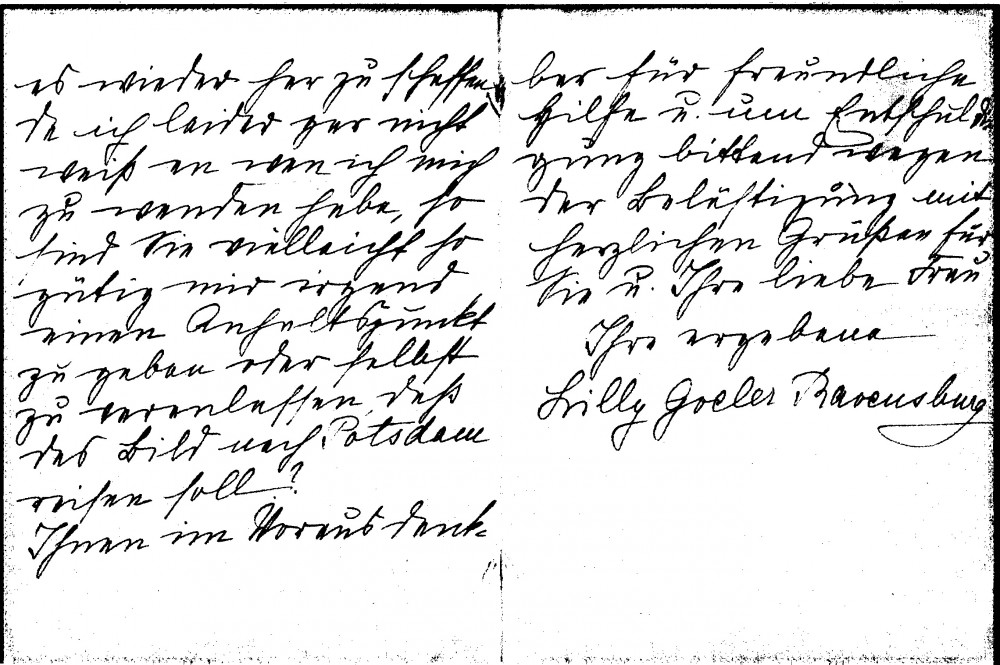 es wieder her zu schaffen,
da ich leider gar nicht
weiß an wen ich mich
zu wenden habe, so
sind Sie vielleicht so
gütig mir irgend
einen Anhaltspunkt
zu geben oder selbst
zu veranlassen, daß
das Bild nach Potsdam
reisen soll?
Ihnen im Voraus dank-
bar für freundliche
Hilfe u. um Entschuldi
gung bittend wegen
der Belästigung mit
herzlichen Grüßen für
Sie u. Ihre liebe Frau
Ihre ergebene
Lilly Goeler Ravensburg